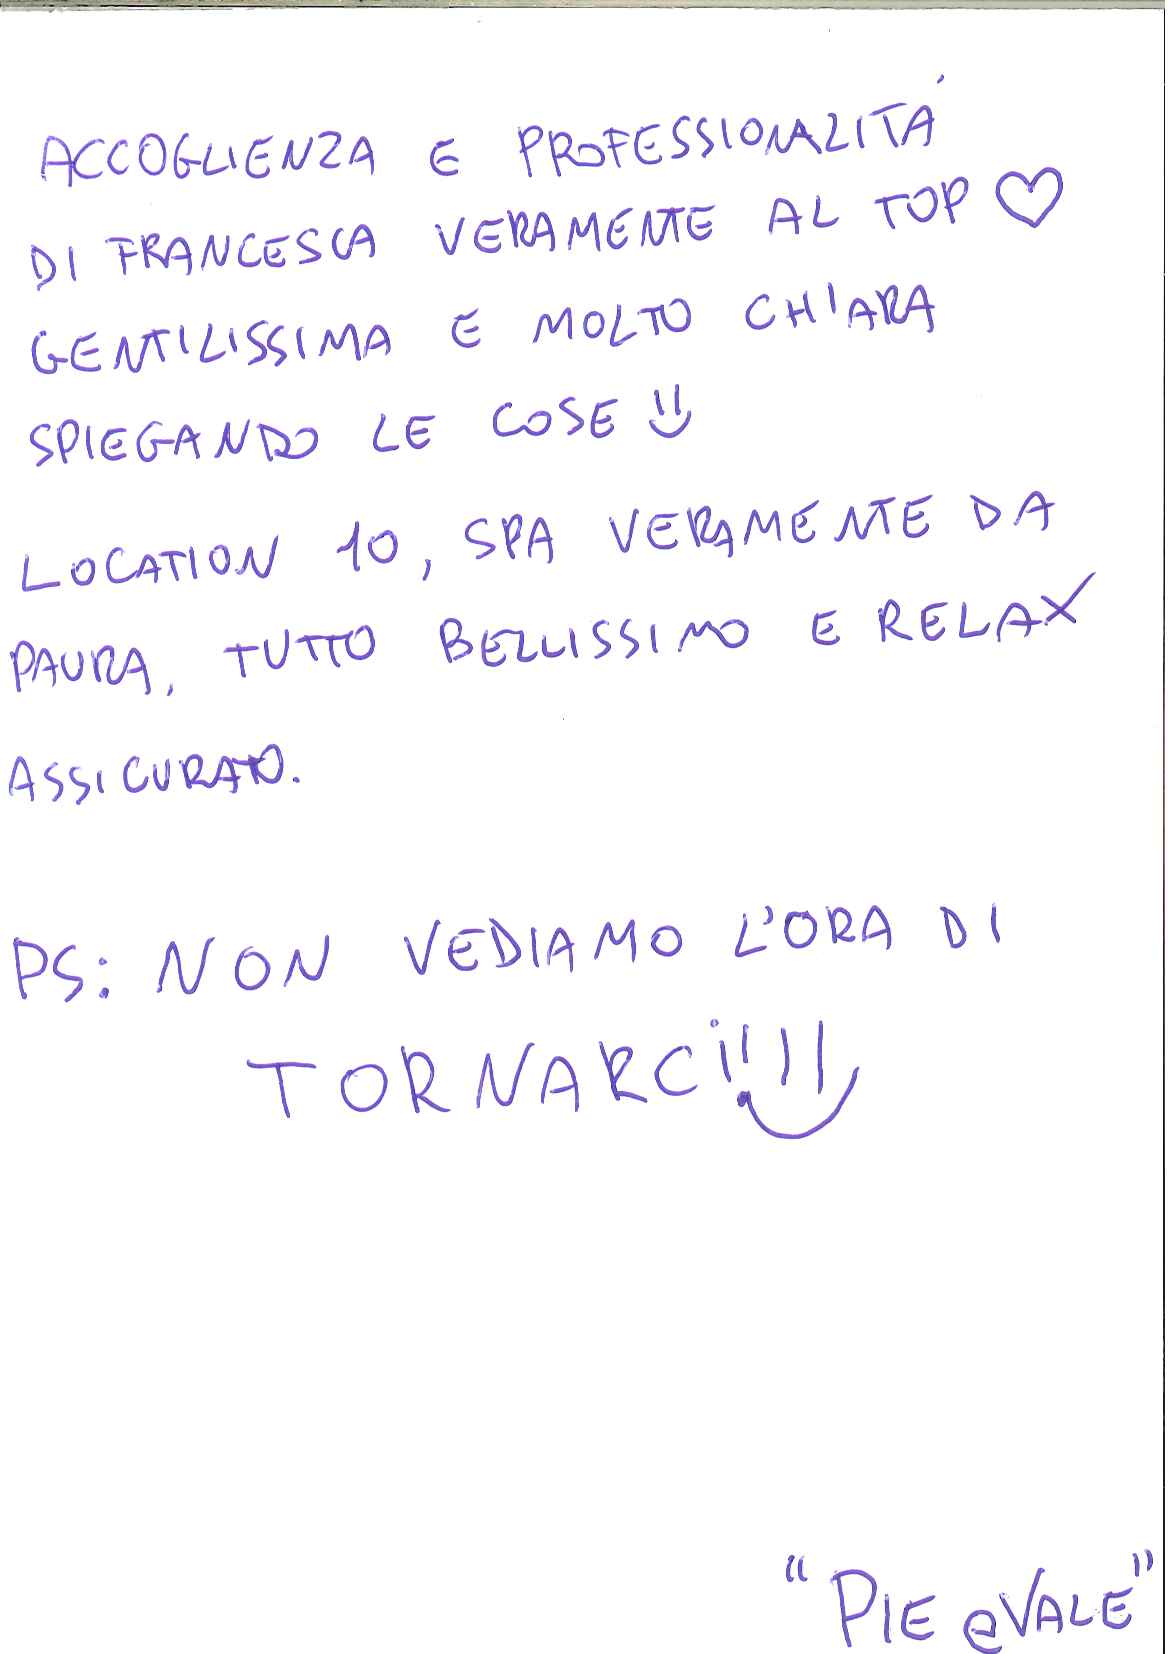 ACCOGLIENZA E PROFESSIONALITA'
DI FRANCESCA VERAMENTE AL TOP ♡
GENTILISSIMA E MOLTO CHIARA
SPIEGANDO LE COSE
LOCATION 10, SPA VERAMENTE DA
PAURA, TUTTO BELLISSIMO E RELAX
ASSICURATO.
PS: NON VEDIAMO L'ORA DI
TORNARCi!!!
"PIE e VALE"